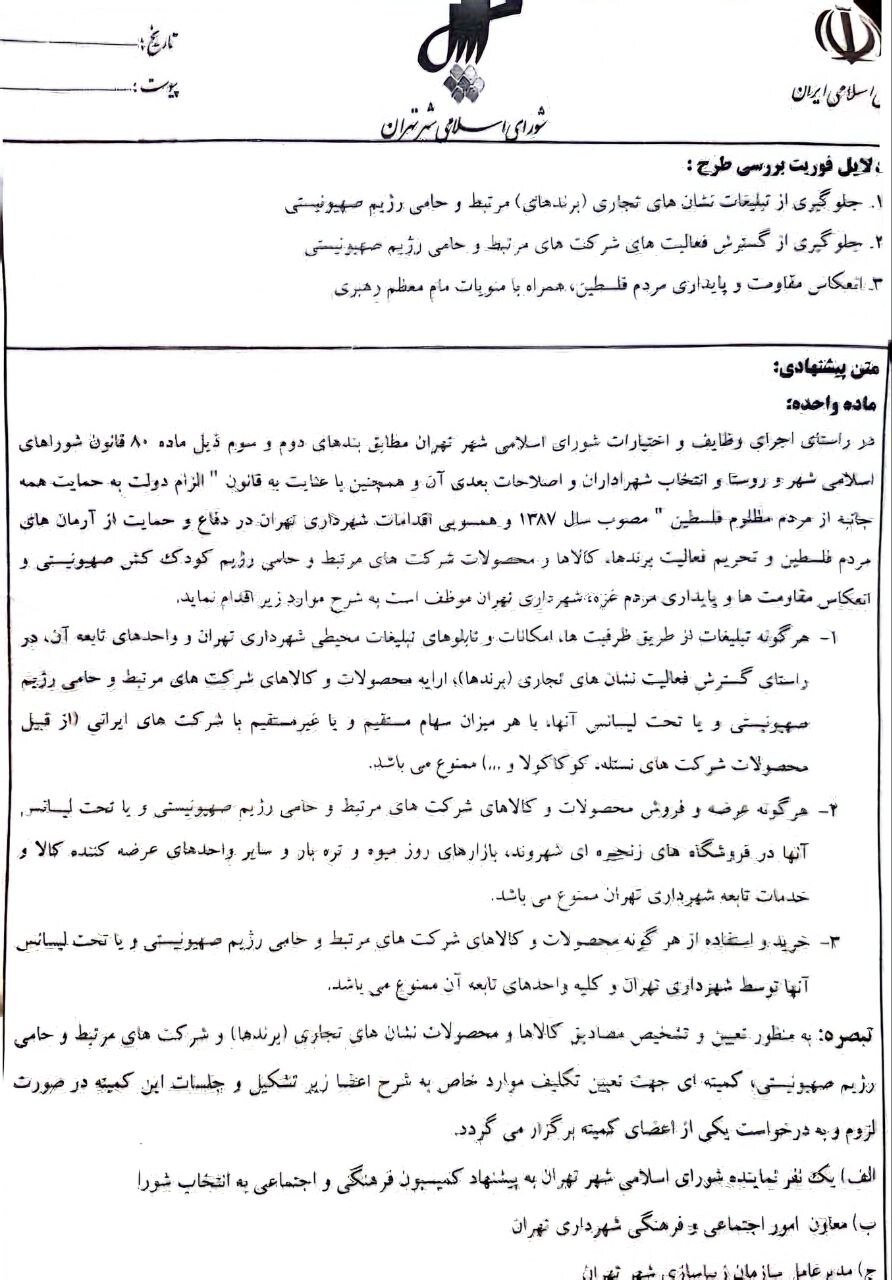 تاریخ :
پیوست :
اسلامی ایران
شورای اسلامی شهر تهران
دلایل فوریت بررسی طرح :
۱. جلوگیری از تبلیغات نشان های تجاری (برندهای) مرتبط و حامی رژیم صهیونیستی
۲. جلوگیری از گسترش فعالیت های شرکت های مرتبط و حامی رژیم صهیونیستی
۳. انعکاس مقاومت و پایداری مردم فلسطین، همراه با منویات مام معظم رهبری
متن پیشنهادی:
ماده واحده:
در راستای اجرای وظایف و اختیارات شورای اسلامی شهر تهران مطابق بندهای دوم و سوم ذیل ماده ۸۰ قانون شوراهای
اسلامی شهر و روستا و انتخاب شهراداران و اصلاحات بعدی آن و همچنین با عنایت به قانون " الزام دولت به حمایت همه
جانبه از مردم مظلوم فلسطین " مصوب سال ۱۳۸۷ و همسویی اقدامات شهرداری تهران در دفاع و حمایت از آرمان های
مردم فلسطین و تحریم فعالیت برندها، کالاها و محصولات شرکت های مرتبط و حامی رژیم کودک کش صهیونیستی و
انعکاس مقاومت ها و پایداری مردم غزه، شهرداری تهران موظف است به شرح موارد زیر اقدام نماید.
۱- هرگونه تبلیغات از طریق ظرفیت ها، امکانات و تابلوهای تبلیغات محیطی شهرداری تهران و واحدهای تابعه آن، در
راستای گسترش فعالیت نشان های تجاری (برندها)، ارایه محصولات و کالاهای شرکت های مرتبط و حامی رژیم
صهیونیستی و یا تحت لیسانس آنها، با هر میزان سهام مستقیم و یا غیرمستقیم با شرکت های ایرانی (از قبیل
محصولات شرکت های نستله، کوکاکولا و ...) ممنوع می باشد.
۲- هرگونه عرضه و فروش محصولات و کالاهای شرکت های مرتبط و حامی رژیم صهیونیستی و یا تحت لیسانس
آنها در فروشگاه های زنجیره ای شهروند، بازارهای روز میوه و تره بار و سایر واحدهای عرضه کننده کالا و
خدمات تابعه شهرداری تهران ممنوع می باشد.
۳- خرید و استفاده از هر گونه محصولات و کالاهای شرکت های مرتبط و حامی رژیم صهیونیستی و یا تحت لیسانس
آنها توسط شهرداری تهران و کلیه واحدهای تابعه آن ممنوع می باشد.
تبصره: به منظور تعیین و تشخیص مصادیق کالاها و محصولات نشان های تجاری (برندها) و شرکت های مرتبط و حامی
رژیم صهیونیستی، کمیته ای جهت تعیین تکلیف موارد خاص به شرح اعضا زیر تشکیل و جلسات این کمیته در صورت
لزوم و به درخواست یکی از اعضای کمیته برگزار می گردد.
الف) یک نفر نماینده شورای اسلامی شهر تهران به پیشنهاد کمیسیون فرهنگی و اجتماعی به انتخاب شورا
ب) معاون امور اجتماعی و فرهنگی شهرداری تهران
ج) مدیرعامل سازمان زیباسازی شهر تهران